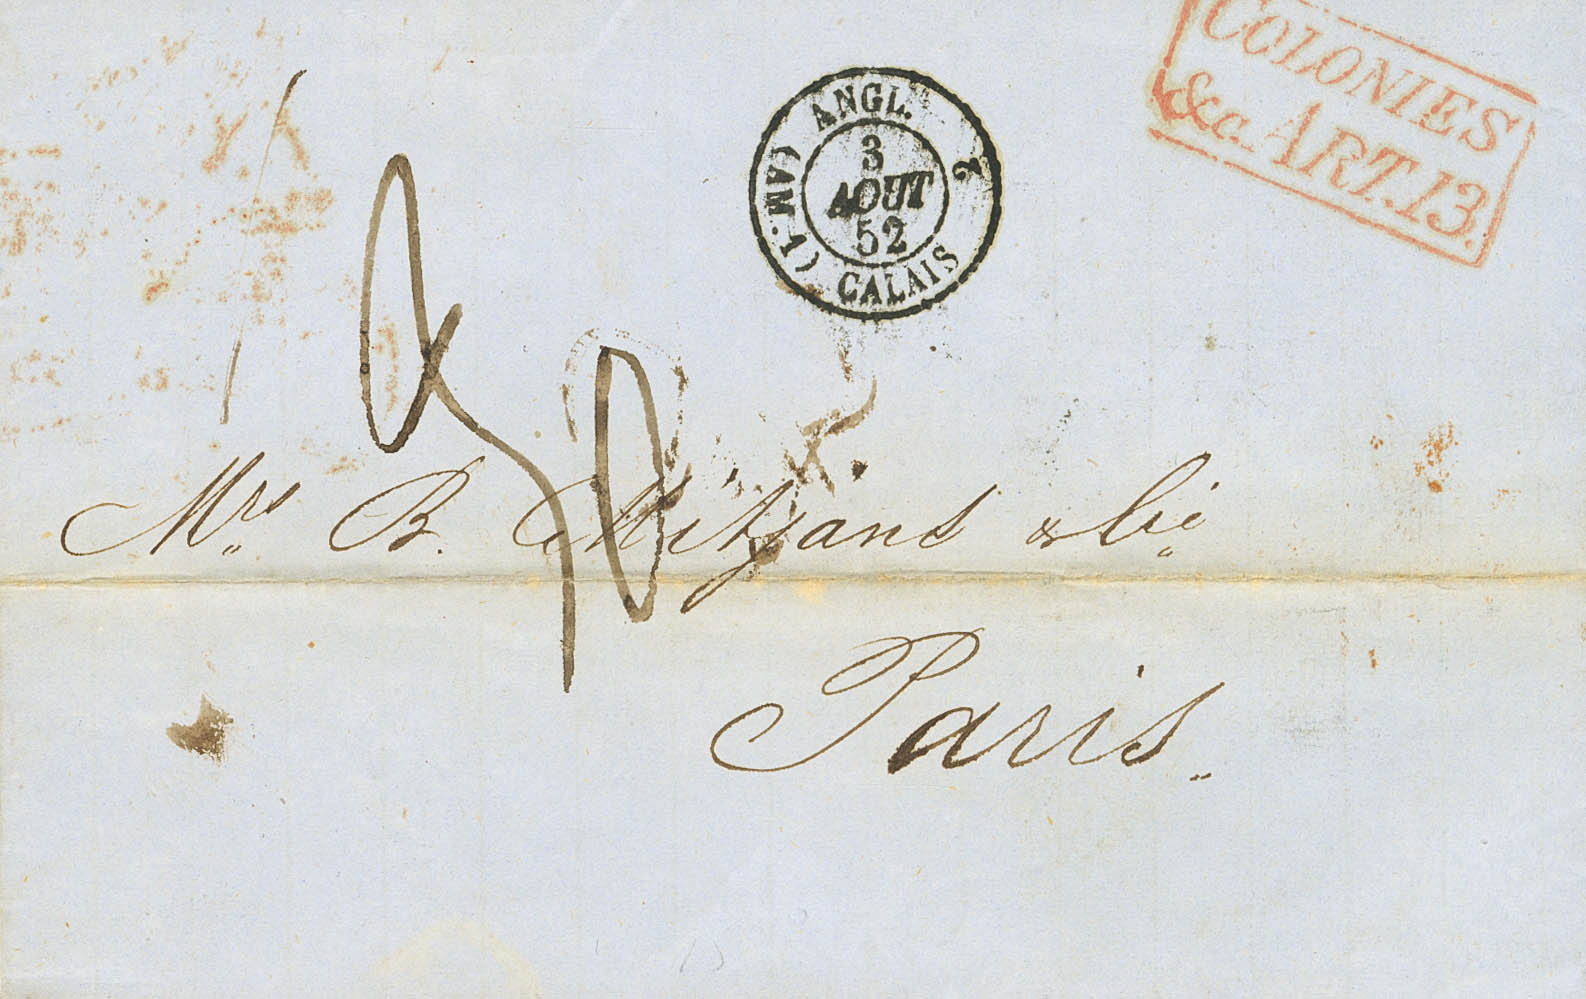 COLONIES
&c. ART.13.
ANGL. 2
3
AOUT
52
(AM. 1) CALAIS
Mrs B. Mitjans & Cie
Paris.